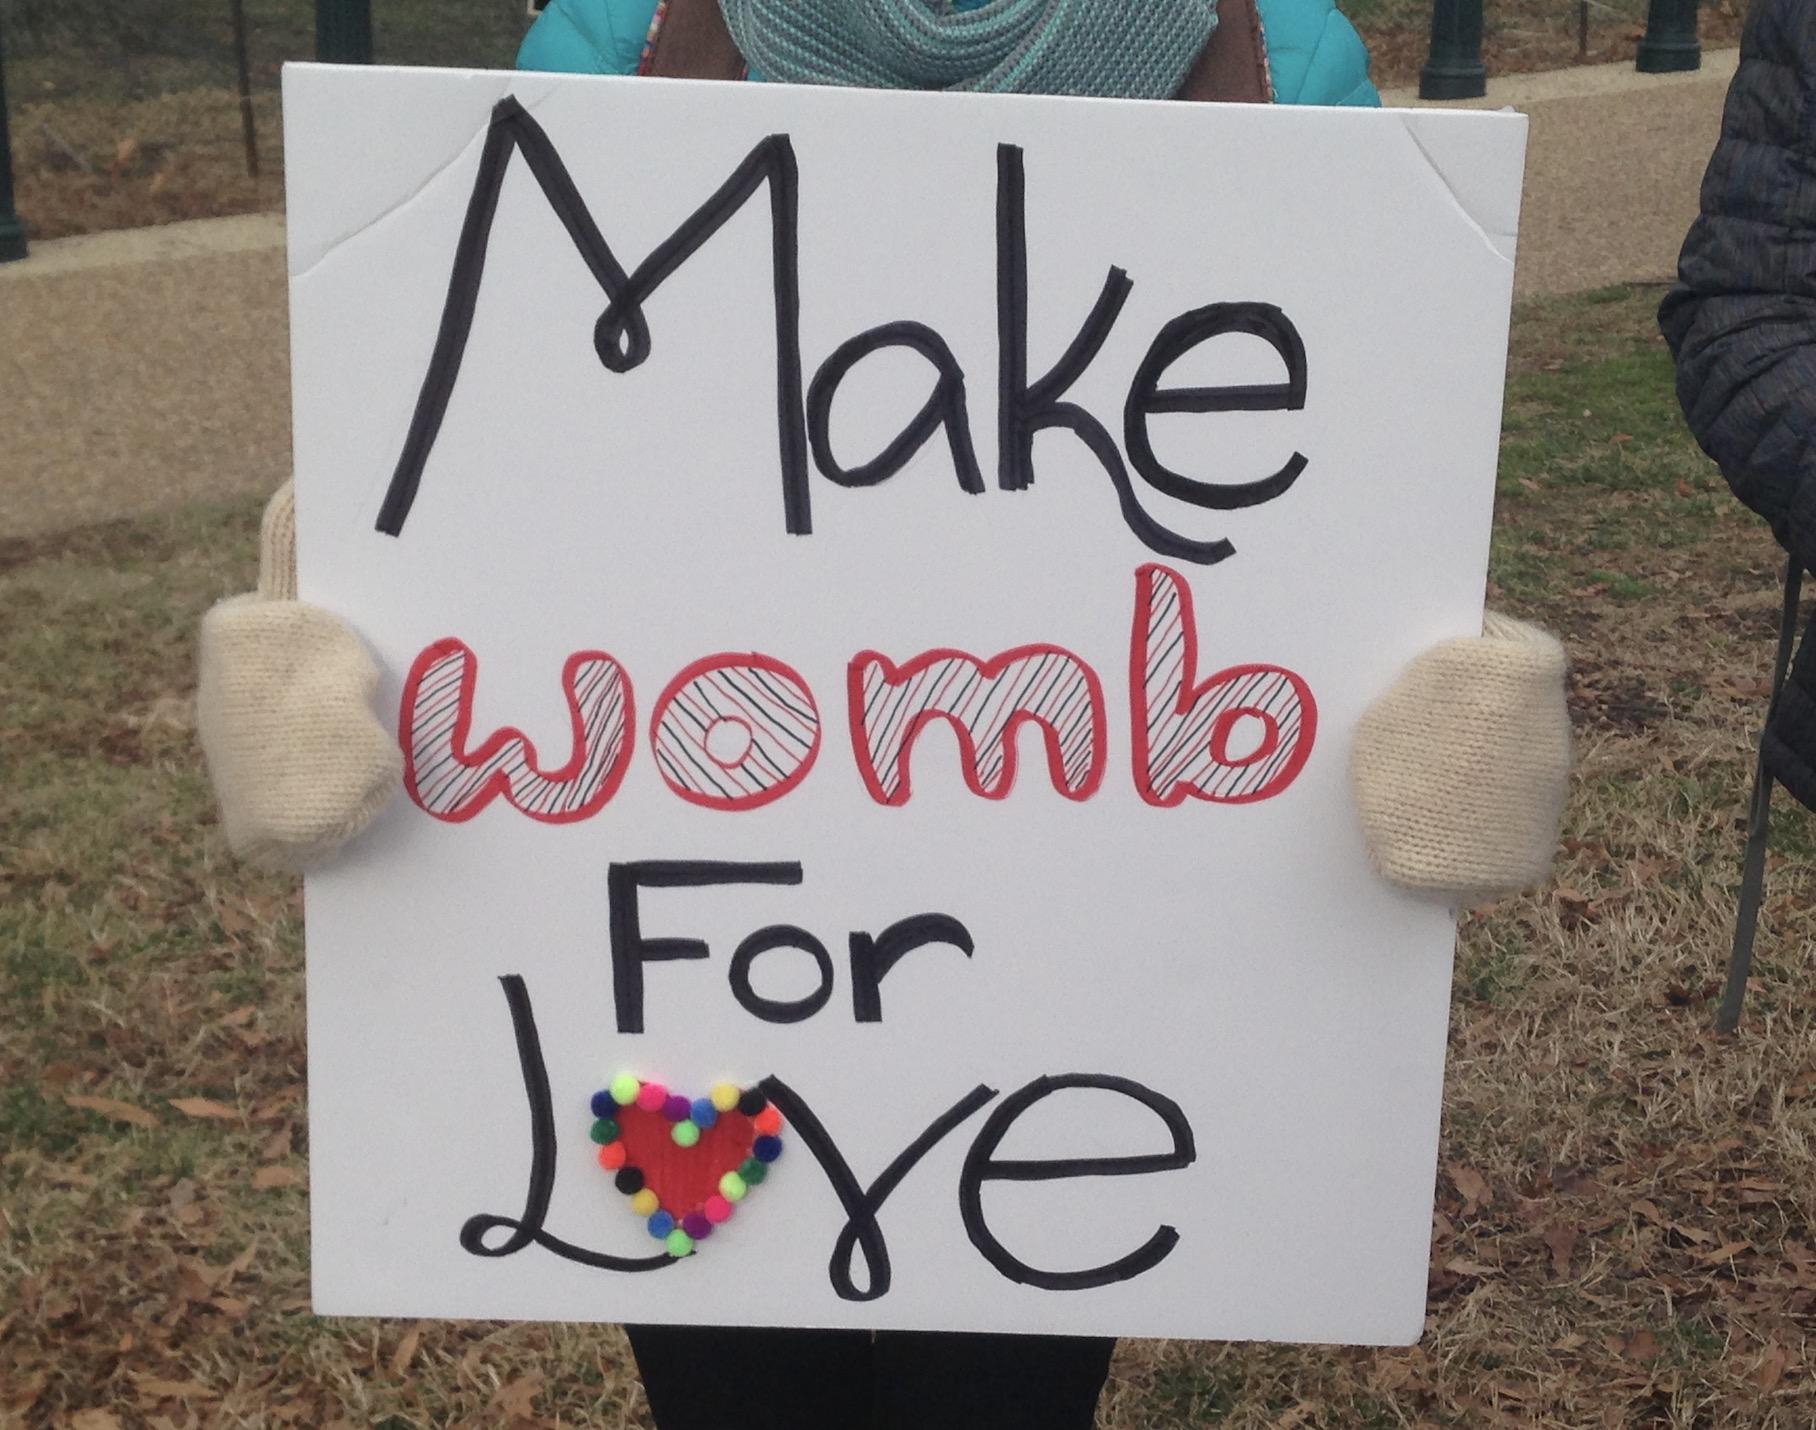 Make
womb
For
Love